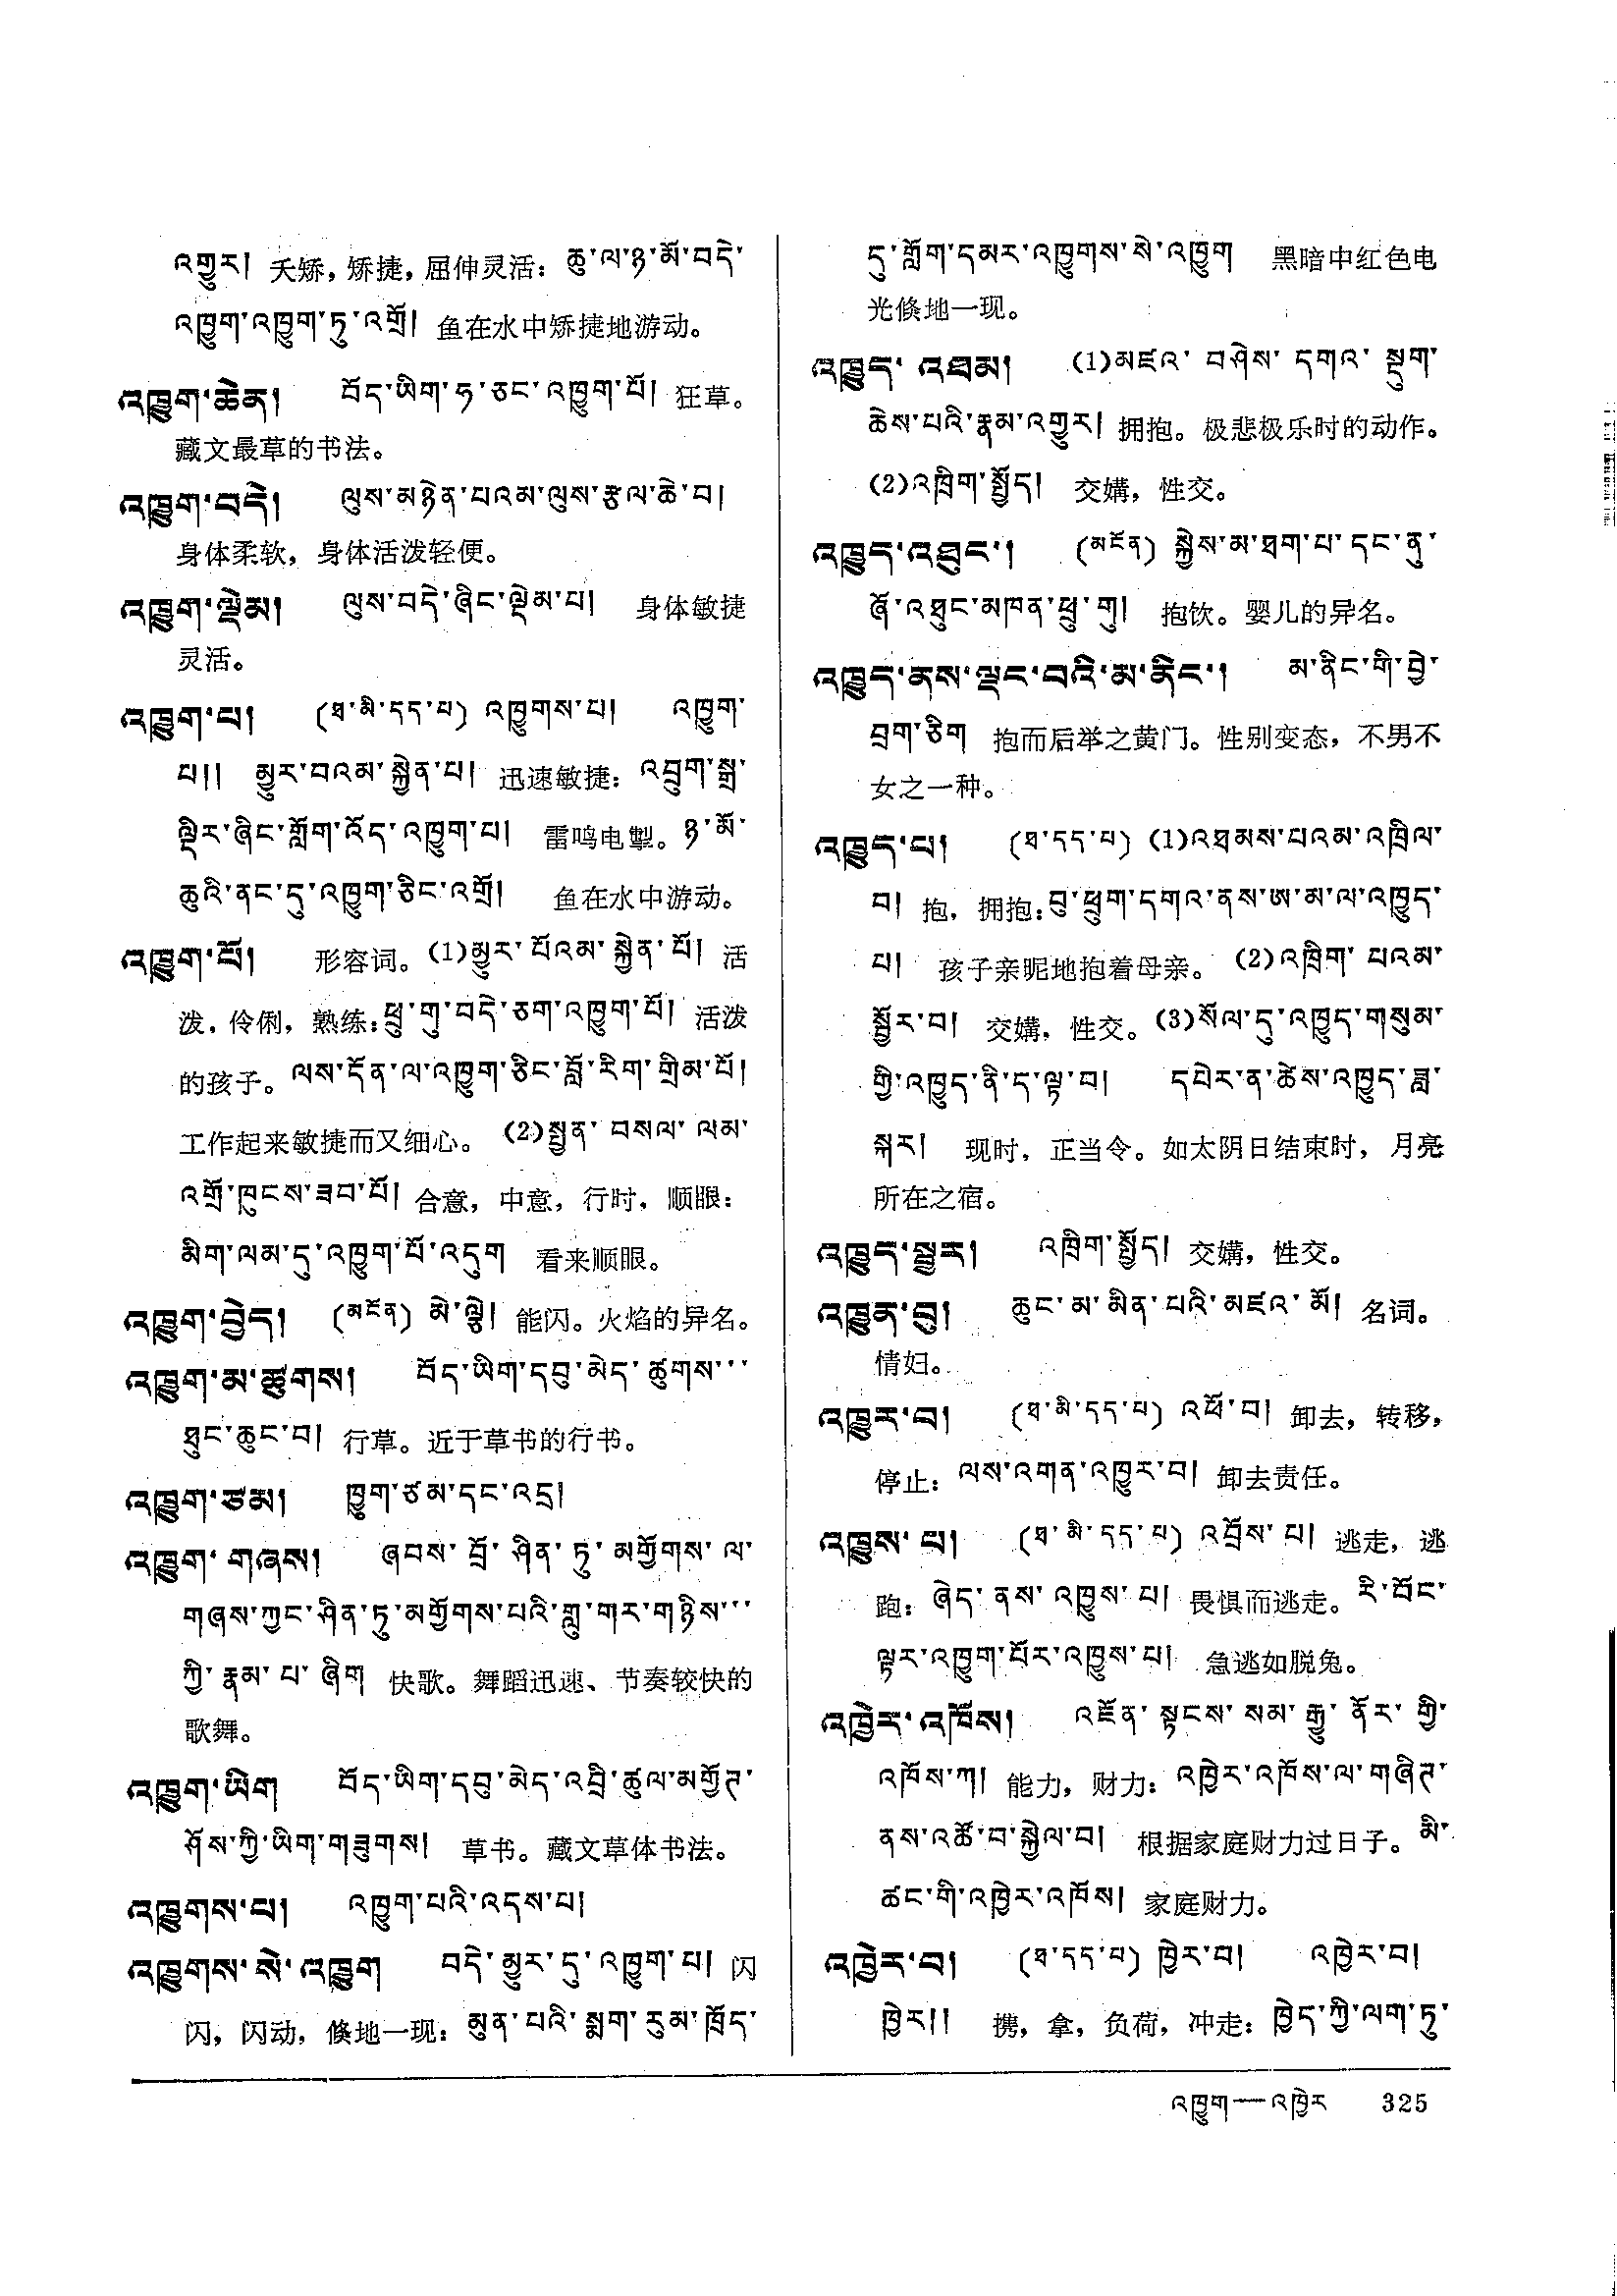 འགྱུར། 夭矫，矫捷，屈伸灵活：ཆུ་ལ་ཉ་མོ་བདེ་
འཁྱུག་འཁྱུག་ཏུ་འགྲོ། 鱼在水中矫捷地游动。
འཁྱུག་ཆེན། བོད་ཡིག་ཧ་ཅང་འཁྱུག་པོ། 狂草。
藏文最草的书法。
འཁྱུག་བདེ། ལུས་མཉེན་པའམ་ལུས་རྩལ་ཆེ་བ།
身体柔软，身体活泼轻便。
འཁྱུག་ལྡེམ། ལུས་བདེ་ཞིང་ལྡེམ་པ། 身体敏捷
灵活。
འཁྱུག་པ། (ཐ་མི་དད་པ) འཁྱུགས་པ། འཁྱུག་
པ།། མྱུར་བའམ་སྐྱེན་པ། 迅速敏捷：འབྲུག་སྒྲ་
ལྡིར་ཞིང་གློག་འོད་འཁྱུག་པ། 雷鸣电掣。ཉ་མོ་
ཆུའི་ནང་དུ་འཁྱུག་ཅིང་འགྲོ། 鱼在水中游动。
འཁྱུག་པོ། 形容词。(1)མྱུར་པོའམ་སྐྱེན་པོ། 活
泼，伶俐，熟练：ཕྲུ་གུ་བདེ་ཅག་འཁྱུག་པོ། 活泼
的孩子。ལས་དོན་ལ་འཁྱུག་ཅིང་བློ་རིག་གྲིམ་པོ།
工作起来敏捷而又细心。(2)སྤྱན་བསལ་ལམ་
འགྲོ་ཁུངས་ཟབ་པོ། 合意，中意，行时，顺眼：
མིག་ལམ་དུ་འཁྱུག་པོ་འདུག 看来顺眼。
འཁྱུག་བྱེད། (མངོན) མེ་ལྕེ། 能闪。火焰的异名。
འཁྱུག་མ་ཚུགས། བོད་ཡིག་དབུ་མེད་ཚུགས་་་
ཐུང་ཆུང་བ། 行草。近于草书的行书。
འཁྱུག་ཙམ། ཁྱུག་ཙམ་དང་འདྲ།
འཁྱུག་གཞས། ཞབས་བྲོ་ཤིན་ཏུ་མགྱོགས་ལ་
གཞས་ཀྱང་ཤིན་ཏུ་མགྱོགས་པའི་གླུ་གར་གཉིས་་་
ཀྱི་རྣམ་པ་ཞིག 快歌。舞蹈迅速、节奏较快的
歌舞。
འཁྱུག་ཡིག བོད་ཡིག་དབུ་མེད་འབྲི་ཚུལ་མགྱོཊ་
ཤོས་ཀྱི་ཡིག་གཟུགས། 草书。藏文草体书法。
འཁྱུགས་པ། འཁྱུག་པའི་འདས་པ།
འཁྱུགས་སེ་འཁྱུག བདེ་མྱུར་དུ་འཁྱུག་པ། 闪
闪，闪动，倏地一现：མུན་པའི་སྨག་རུམ་ཁྲོད་
དུ་གློག་དམར་འཁྱུགས་སེ་འཁྱུག 黑暗中红色电
光倏地一现。
འཁྱུད་འཐམ། (1)མཛའ་བཤེས་དགའ་སྡུག་
ཆེས་པའི་རྣམ་འགྱུར། 拥抱。极悲极乐时的动作。
(2)འཁྲིག་སྤྱོད། 交媾，性交。
འཁྱུད་འཐུང་། (མངོན) སྐྱེས་མ་ཐག་པ་དང་ནུ་
ཞོ་འཐུང་མཁན་ཕྲུ་གུ། 抱饮。婴儿的异名。
འཁྱུད་ནས་ལྡང་བའི་མ་ནིང་། མ་ནིང་གི་བྱེ་
བྲག་ཅིག 抱而后举之黄门。性别变态，不男不
女之一种。
འཁྱུད་པ། (ཐ་དད་པ) (1)འཐམས་པའམ་འཁྲིལ་
བ། 抱，拥抱：བུ་ཕྲུག་དགའ་ནས་ཨ་མ་ལ་འཁྱུད་
པ། 孩子亲昵地抱着母亲。(2)འཁྲིག་པའམ་
སྦྱོར་བ། 交媾，性交。(3)སོལ་དུ་འཁྱུད་གསུམ་
གྱི་འཁྱུད་ནི་ད་ལྟ་བ། དཔེར་ན་ཚེས་འཁྱུད་ཟླ་
སྐར། 现时，正当令。如太阴日结束时，月亮
所在之宿。
འཁྱུད་སྦྱར། འཁྲིག་སྤྱོད། 交媾，性交。
འཁྱུན་བུ། ཆུང་མ་མིན་པའི་མཛའ་མོ། 名词。
情妇。
འཁྱུར་བ། (ཐ་མི་དད་པ) འཕོ་བ། 卸去，转移，
停止：ལས་འགན་འཁྱུར་བ། 卸去责任。
འཁྱུས་པ། (ཐ་མི་དད་པ) འབྲོས་པ། 逃走，逃
跑：ཞེད་ནས་འཁྱུས་པ། 畏惧而逃走。རི་བོང་
ལྟར་འཁྱུག་པོར་འཁྱུས་པ། 急逃如脱兔。
འཁྱེར་འཁོས། འཛོན་སྟངས་སམ་རྒྱུ་ནོར་གྱི་
འཁོས་ཀ། 能力，财力：འཁྱེར་འཁོས་ལ་གཞིཊ་
ནས་འཚོ་བ་སྐྱེལ་བ། 根据家庭财力过日子。མི་
ཚང་གི་འཁྱེར་འཁོས། 家庭财力。
འཁྱེར་བ། (ཐ་དད་པ) ཁྱེར་བ། འཁྱེར་བ།
ཁྱེར།། 携，拿，负荷，冲走：ཁྱེད་ཀྱི་ལག་ཏུ་
འཁྱུག—འཁྱེར 325